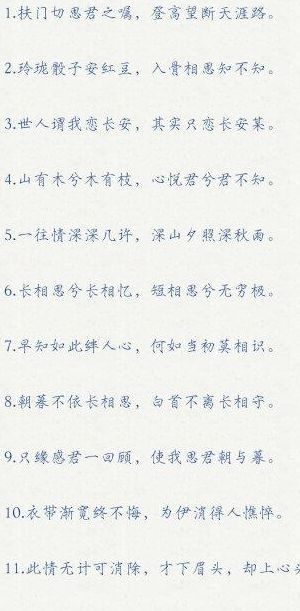 1.扶门切思君之嘱，登高望断天涯路。
2.玲珑骰子安红豆，入骨相思知不知。
3.世人谓我恋长安，其实只恋长安某。
4.山有木兮木有枝，心悦君兮君不知。
5.一往情深深几许，深山夕照深秋雨。
6.长相思兮长相忆，短相思兮无穷极。
7.早知如此绊人心，何如当初莫相识。
8.朝暮不依长相思，白首不离长相守。
9.只缘感君一回顾，使我思君朝与暮。
10.衣带渐宽终不悔，为伊消得人憔悴。
11.此情无计可消除，才下眉头，却上心